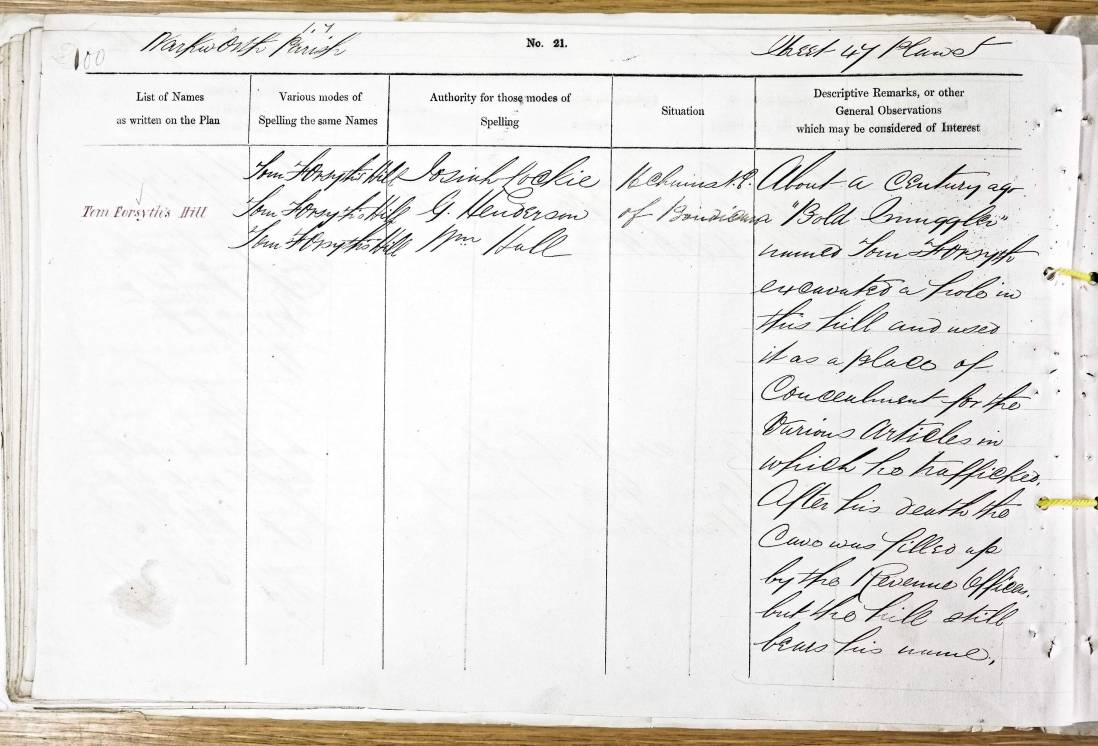 100
Warkworth Parish
17
No. 21.
Sheet 47 Plan 5
List of Names
as written on the Plan
Various modes of
Spelling the same Names
Authority for those modes of
Spelling
Situation
Descriptive Remarks, or other
General Observations
which may be considered of Interest
Tom Forsyth's Hill
Tom Forsyth's Hill
Tom Forsyth's Hill
Tom Forsyth's Hill
Josiah Lockie
G. Henderson
Wm Hall
chains N.E.
of
About a Century ago
a "Bold Smuggler"
named Tom Forsyth
excavated a hole in
this hill and used
it as a place of
Concealment for the
Various Articles in
which he trafficked.
After his death the
Cave was filled up
by the Revenue Officers.
but the hill still
bears his name.